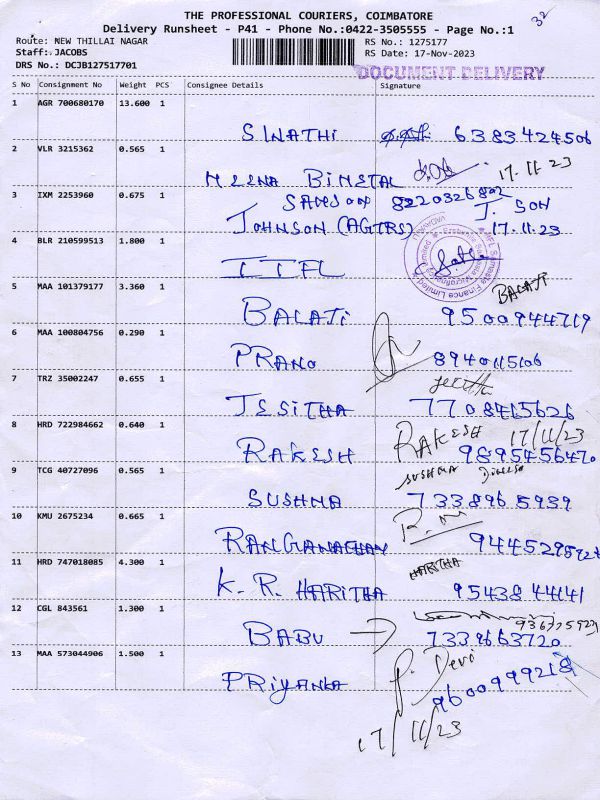 THE PROFESSIONAL COURIERS, COIMBATORE
32
Delivery Runsheet - P41 - Phone No.:0422-3505555 - Page No.:1
Route: NEW THILLAI NAGAR
Staff: JACOBS
DRS No.: DCJB127517701
RS No.: 1275177
RS Date: 17-Nov-2023
DOCUMENT DELIVERY
S No Consignment No Weight PCS Consignee Details Signature
1 AGR 700680170 13.600 1
SWATHI 6383424506
2 VLR 3215362 0.565 1
MEENA BIMETAL 17.11.23
3 IXM 2253960 0.675 1
SAMSON 8220326802
JOHNSON (AGTRS) J. SON
17.11.23
4 BLR 210599513 1.800 1
IIFL
5 MAA 101379177 3.360 1
BALAJI
BALAJI 9500944719
6 MAA 100804756 0.290 1
PRANO 8940115106
7 TRZ 35002247 0.655 1
JESITHA 7708415626
8 HRD 722984662 0.640 1
RAKESH 17/11/23
RAKESH 9895456470
9 TCG 40727096 0.565 1
SUSHMA
SUSHMA 7338965939
10 KMU 2675234 0.665 1
R.M
RANGANATHAN
11 HRD 747018085 4.300 1
HARITHA
K. R. HARITHA 9543844141
12 CGL 843561 1.300 1
BABU → 7339663720
13 MAA 573044906 1.500 1
P. Devi
PRIYANKA 9600999218
17/11/23